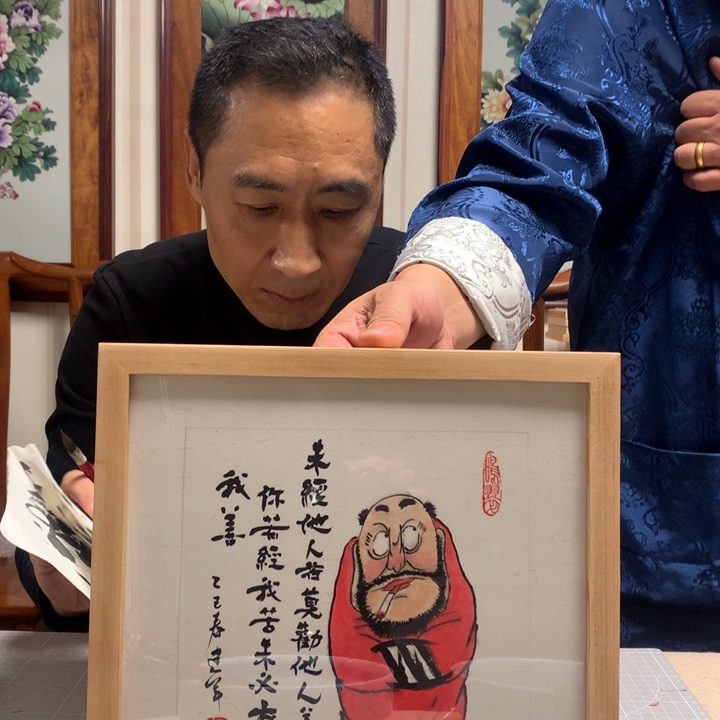 未經他人苦莫勸他人善
你若經我苦未必有
我善
乙巳春建军